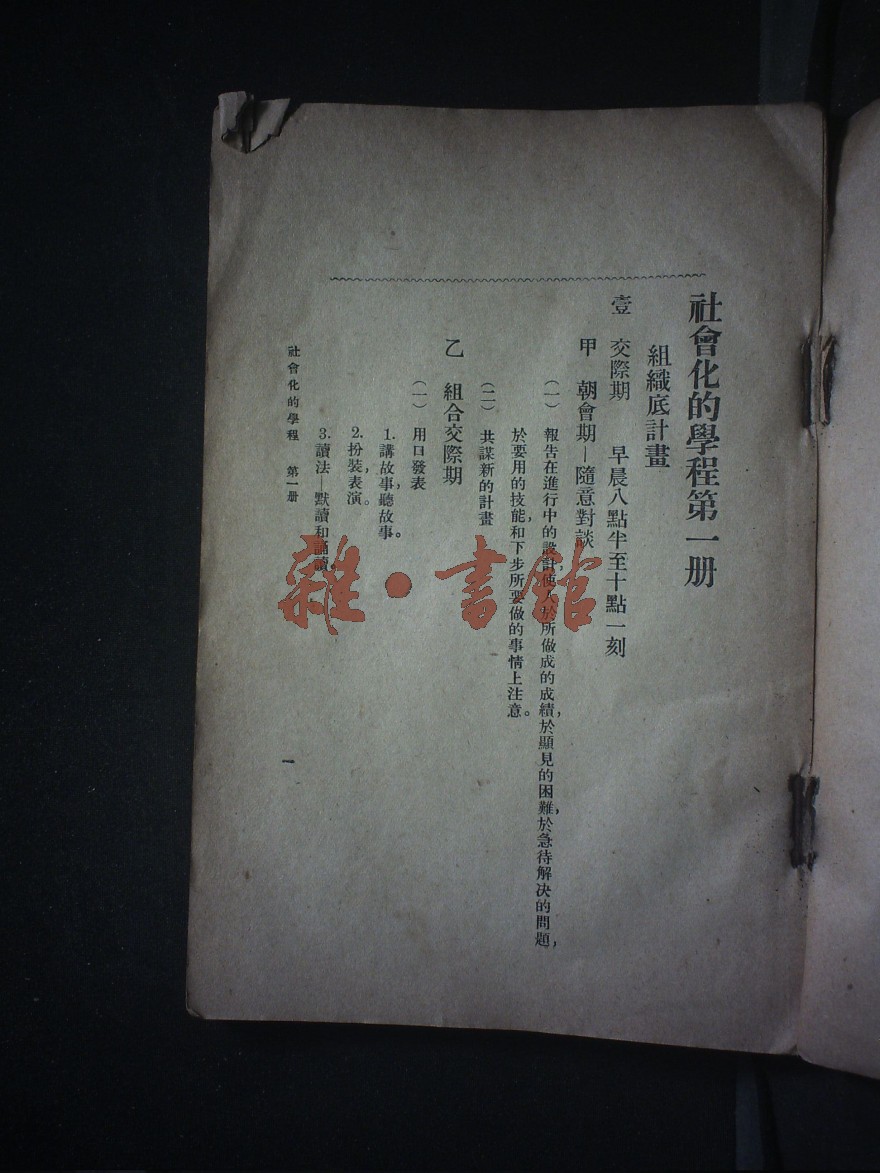 社會化的學程第一册
組織底計畫
壹　交際期　早晨八點半至十點一刻
甲　朝會期—隨意對談
（一）　報告在進行中的設計，使人於所做成的成績，於顯見的困難，於急待解决的問題，
於要用的技能，和下步所要做的事情上注意。
（二）　共謀新的計畫
乙　組合交際期
（一）　用口發表
1.講故事，聽故事。
2.扮裝表演。
3.讀法—默讀和誦讀。
社會化的學程　第一册
一
雜·書館